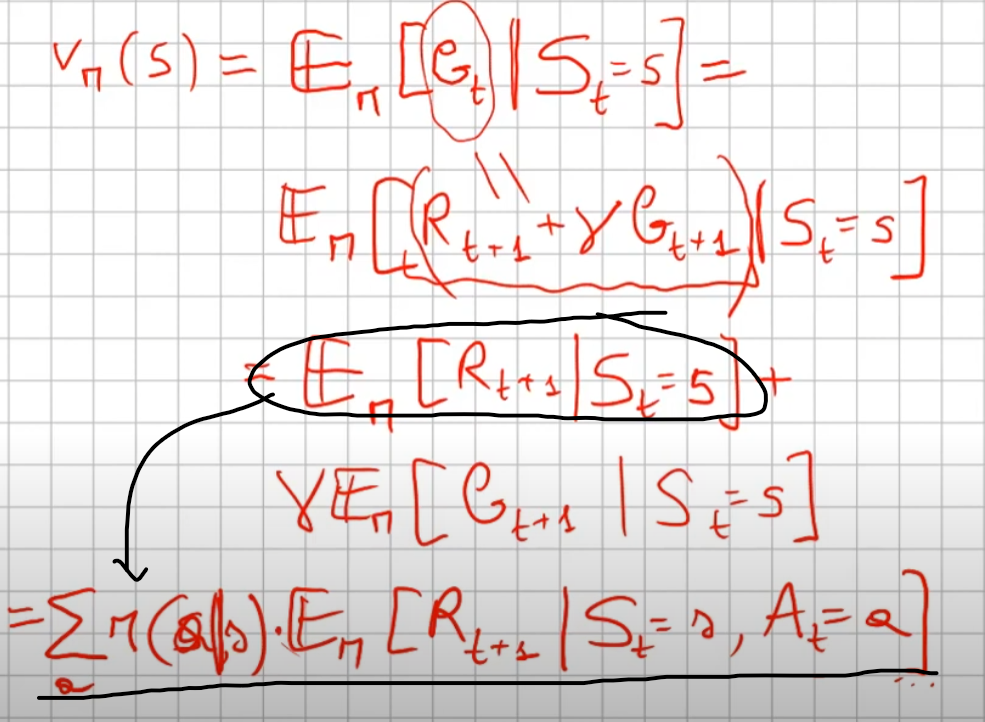 v_π(s) = 𝔼_π[G_t | S_t = s] =
𝔼_π[(R_{t+1} + γ G_{t+1}) | S_t = s]
= 𝔼_π[R_{t+1} | S_t = s] +
γ 𝔼_π[G_{t+1} | S_t = s]
= Σ_a π(a|s) · 𝔼_π[R_{t+1} | S_t = s, A_t = a] ...